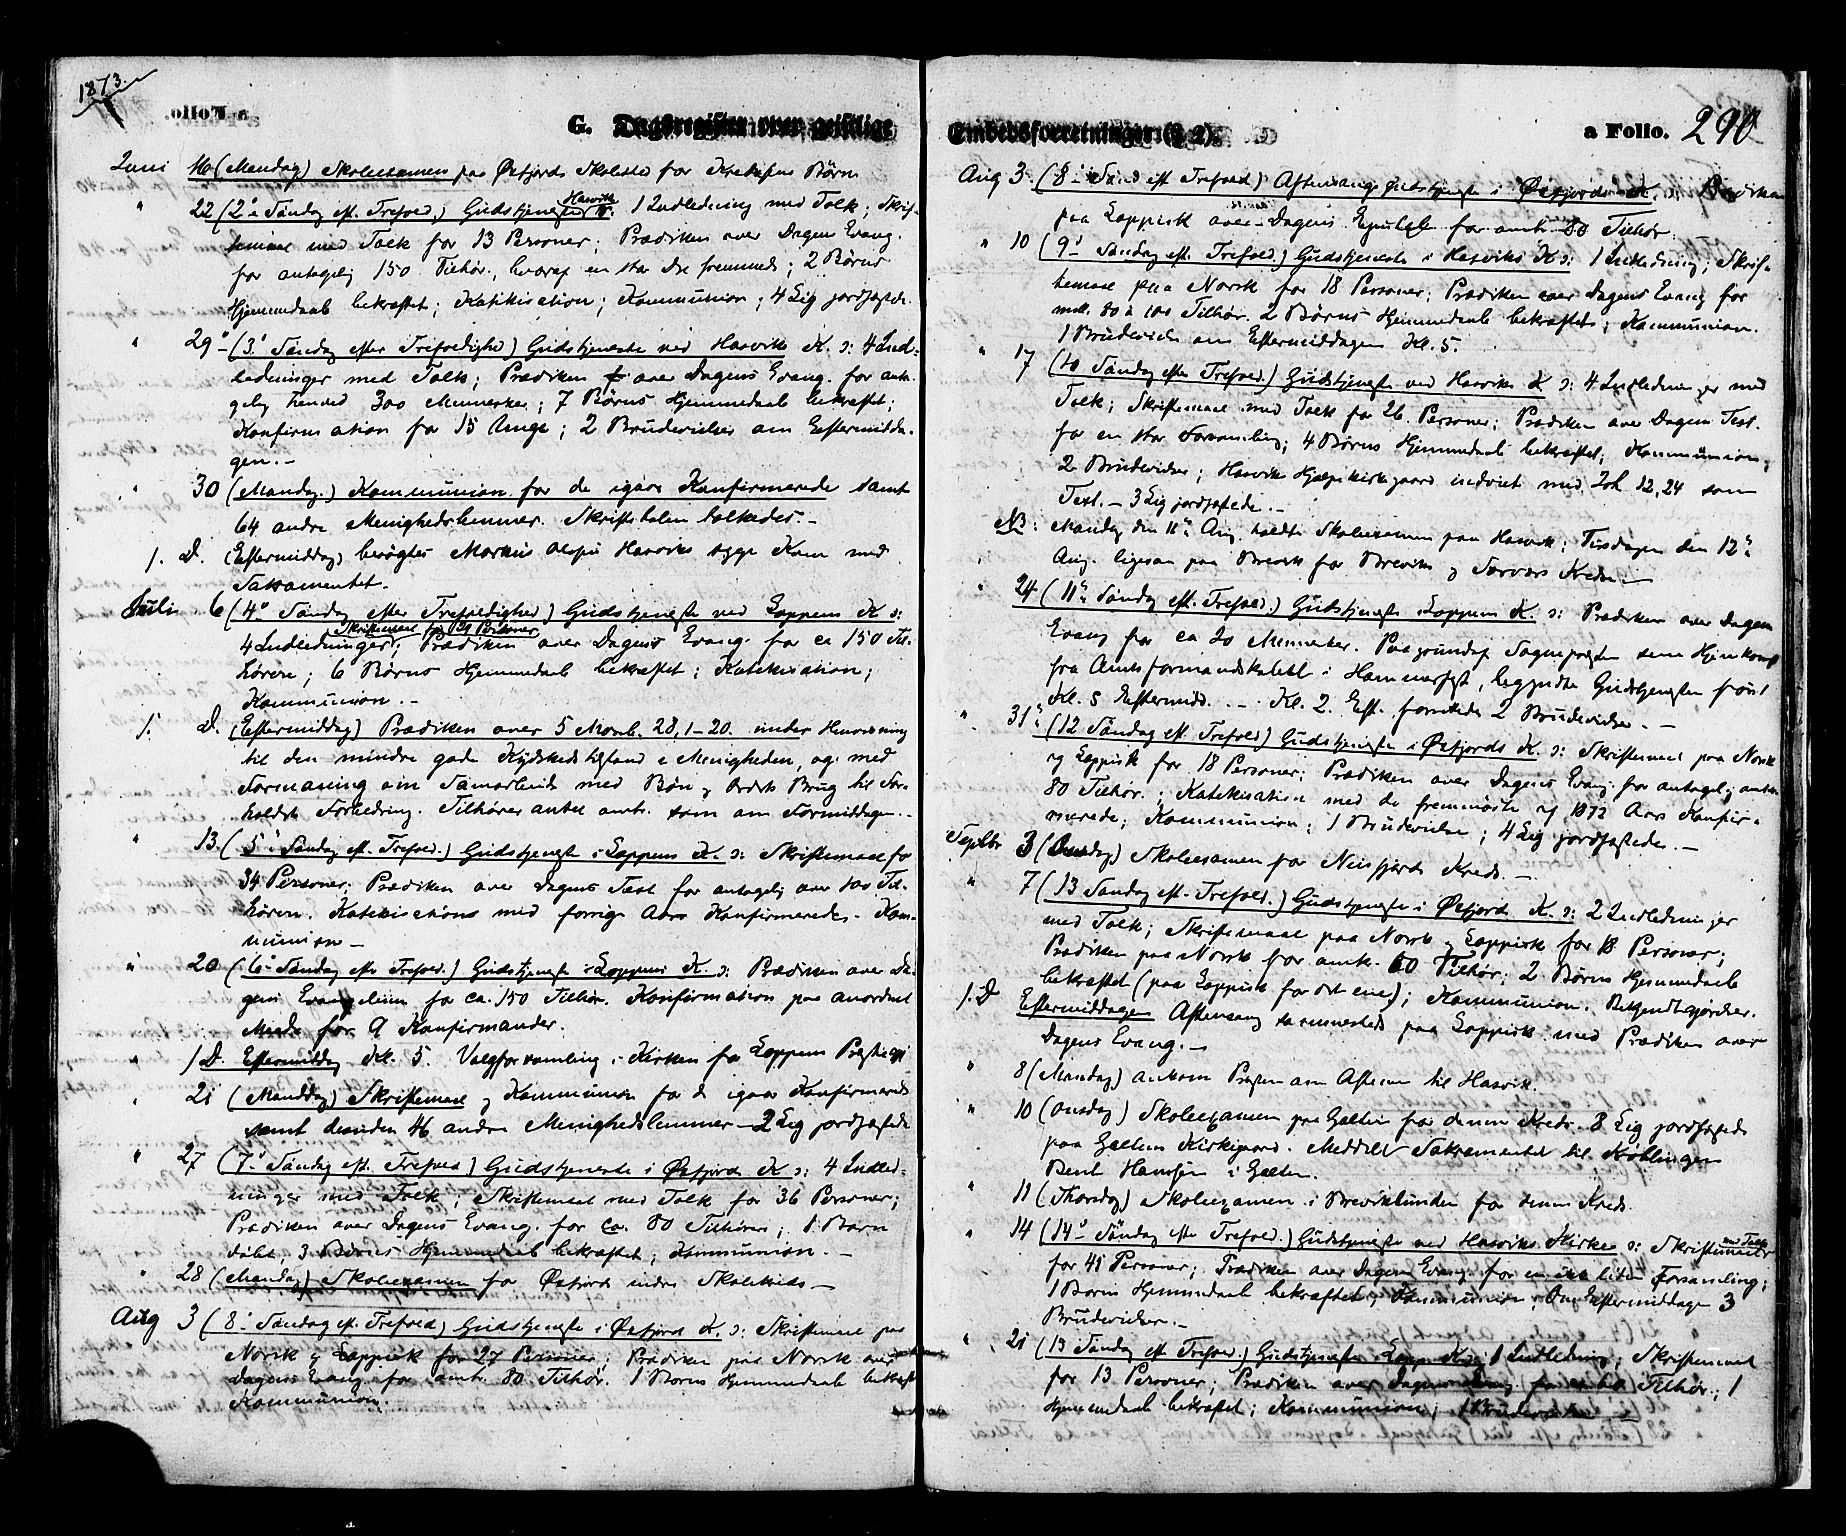 1873.
a Folio.
G. Dagsregister over geistlige
Juni 16 (Mandag) Skoleexamen paa Øxfjords Skolested for Kredsens Børn
" 22 (2den Søndag eft. Trefold.) Gudstjeneste Hasvik K. 1 Indledning med Tolk; Skrif-
temaal med Tolk for 13 Personer; Prædiken over Dagens Evang.
for antagelig 150 Tilhør., hvoraf en stor Del fremmede; 2 Børns
Hjemmedaab bekræftet; Katekisation; Kommunion; 4 Lig jordfæstede.
" 29 (3. Søndag efter Trefoldighed) Gudstjeneste ved Hasviks K. ɔ: 4 Ind-
ledninger med Tolk; Prædiken over Dagens Evang. for anta-
gelig henved 300 Mennesker; 7 Børns Hjemmedaab bekræftet;
Konfirmation for 15 Unge; 2 Brudevielser om Eftermidda-
gen.-
" 30 (Mandag.) Kommunion for de igaar Konfirmerede samt
64 andre Menighedslemmer. Skriftetalen tolkedes.-
s. D. (Eftermiddag) besøgtes Markus Hasviks syge Kone med
Sakramentet.
Juli 6 (4de Søndag efter Trefoldighed) Gudstjeneste ved Loppens K. ɔ:
4 Indledninger; Skriftemaal for Personer Prædiken over Dagens Evang. for ca 150 Til-
hørere; 6 Børns Hjemmedaab bekræftet; Katekisation;
Kommunion.-
s. D. (Eftermiddag) Prædiken over 5 Moseb. 28, 1-20. under Henvisning
til den mindre gode Kydskedstilstand i Menigheden, og med
Formaning om Samarbeide med Bøn og Ordets Brug til For-
holdets Forbedring. Tilhørerantal omtr. som om Formiddagen.-
" 13 (5te Søndag eft. Trefold.) Gudstjeneste i Loppens K. ɔ: Skriftemaal for
34 Personer; Prædiken over Dagens Text for antagelig over 100 Til-
hørere. Katekisation med forrige Aars Konfirmerede. Kom-
munion-
" 20 (6te Søndag eft. Trefold.) Gudstjeneste i Loppens K. ɔ: Prædiken over Da-
gens Evangelium for ca. 150 Tilhør. Konfirmation paa anordnet
Maade for 9 Konfirmander.
" s. D. Eftermiddag Kl. 5. Valgforsamling i Kirken for Loppens Præstegj.
" 21 (Manddag) Skriftemaal og Kommunion for de igaar Konfirmerede
samt desuden 46 andre Menighedslemmer - 2 Lig jordfæstede
" 27 (7de Søndag eft. Trefold) Gudstjeneste i Øxfjord K. ɔ: 4 Indled-
ninger med Tolk; Skriftemaal med Tolk for 36 Personer;
Prædiken over Dagens Evang. for ca. 80 Tilhørere; 1 Barn
døbt, 3 Børns Hjemmedaab bekræftet; Kommunion.-
" 28 (Mandag) Skoleexamen for Øxfjord indre Skolekreds-
Aug 3 (8de Søndag eft. Trefold) Gudstjeneste i Øxfjord K. ɔ: Skriftemaal paa
Norsk og Lappisk for 27 Personer; Prædiken paa Norsk over
Dagens Evang. for omtr. 80 Tilhør. 1 Barns Hjemmedaab bekræft.
Kommunion.
Embedsforretninger (§ 2).
a Folio. 290
Aug 3. (8de Sønd eft Trefold) Aftensangsgudstjeneste i Øxfjords K. ɔ: Prædiken
paa Lappisk over Dagens Epistel for omtr. 80 Tilhør.
" 10 (9de Søndag eft. Trefold.) Gudstjeneste i Hasviks K. ɔ: 1 Indledning; Skrif-
temaal paa Norsk for 18 Personer; Prædiken over Dagens Evang for
mell. 80 à 100 Tilhør. 2 Børns Hjemmedaab bekræftede; Kommunion.
1 Brudevielse om Eftermiddagen Kl. 5.
" 17 (10 Søndag efter Trefold.) Gudstjeneste ved Hasviks K ɔ: 4 Indledninger med
Tolk; Skriftemaal med Tolk for 26 Personer; Prædiken over Dagens Text.
for en stor Forsamling; 4 Børns Hjemmedaab bekræftet; Kommunion;
2 Brudevielser; Hasviks Hjælpekirkegaard indviet med Joh 12,24 som
Text. - 3 Lig jordfæstede.-
NB: Mandag den 11te Aug. holdtes Skoleexamen paa Hasvik; Tirsdagen den 12te
Aug. ligesaa paa Brevik for Breviks og Sørværs Kredse-
" 24 (11te Søndag eft. Trefold.) Gudstjeneste i Loppens K. ɔ: Prædiken over Dagens
Evang for ca 20 Mennesker. Paa grund af Sognepræstens sene Hjemkomst
fra Amtsformandskabet i Hammerfest, begyndte Gudstjenesten først
Kl. 5 Eftermidd. - Kl. 2. Eft. forrettedes 2 Brudevielser.-
" 31te (12 Søndag eft. Trefold) Gudstjeneste i Øxfjords K. ɔ: Skriftemaal paa Norsk
og Lappisk for 18 Personer; Prædiken over Dagens Evang. for antagelig omtr.
80 Tilhør.; Katekisation med de fremmødte af 1872 Aars Konfir-
merede; Kommunion; 1 Brudevielse; 4 Lig jordfæstede.-
Septbr 3 (Onsdag) Skoleexamen for Nuvsfjords Kreds.-
" 7 (13 Søndag eft. Trefold.) Gudstjeneste i Øxfjord K. ɔ: 2 Indledninger
med Tolk; Skriftemaal paa Norsk og Lappisk for 18 Personer;
Prædiken paa Norsk for omtr. 60 Tilhør; 2 Børns Hjemmedaab
bekræftet (paa Lappisk for det ene); Kommunion. Bekjendtgjørelser.
s. D Eftermiddagen Aftensang paa Lappisk med Prædiken over
Dagens Evang.-
" 8 (Mandag) ankom Præsten om Aftenen til Hasvik.
" 10 (Onsdag) Skoleexamen paa Galten for denne Kreds. 8 Lig jordfæstede
paa Galtens Kirkegaard. Meddelt Sakramentet til Køblingen
Bent Hansen i Galten.
" 11 (Thorsdag) Skoleexamen i Breviklunden for denne Kreds.
" 14 (14de Søndag efter Trefold.) Gudstjeneste ved Hasviks Kirke ɔ: Skriftemaal med Tolk
for 41 Personer; Prædiken over Dagens Evang for en ikke liden Forsamling;
1 Barns Hjemmedaab bekræftet; Kommunion; Om Eftermiddagen 3
Brudevielser.-
" 21 (15 Søndag eft Trefold.) Gudstjeneste Loppens K ɔ: 1 Indledning; Skriftemaal
for 13 Personer; Prædiken over Dagens Evang for ca 60 Tilhør.; 1
Hjemmedaab bekræftet; Kommunion; 1 Brudevielse -